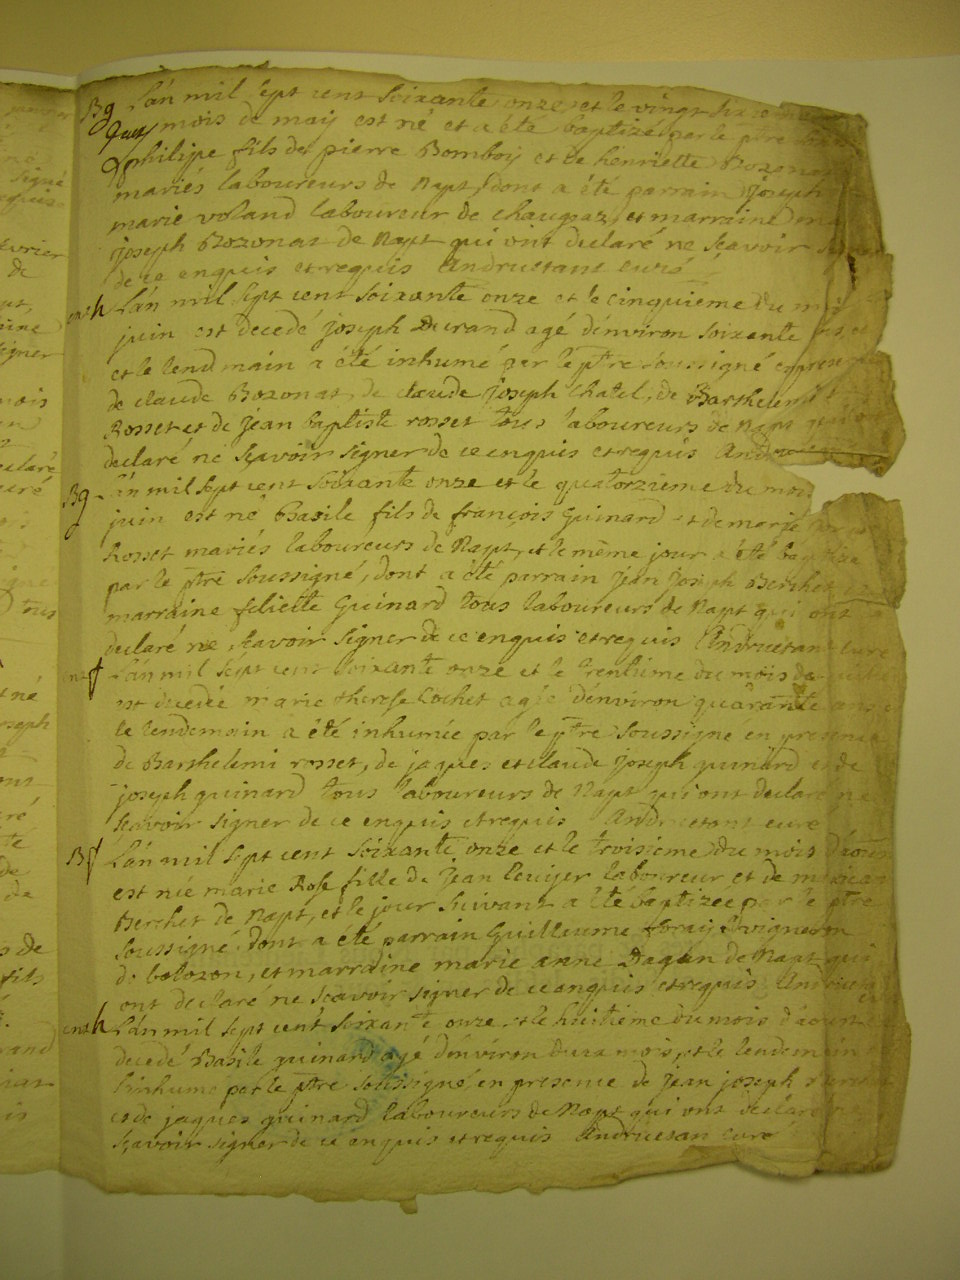 Bg L'an mil sept cent soixante onze, et le vingt sixieme
mois de maij est né et a été baptizé par le ptre
philippe fils de pierre Bomboij et de henriette Bozonat
mariés laboureurs de Napt, dont a été parrain Joseph
marie voland laboureur de chaugeaz, et marraine
joseph Bozonat de Napt qui ont declaré ne scavoir signer
de ce enquis et requis Andruetant curé
ent h L'an mil sept cent soixante onze et le cinquieme du mois
juin est decedé joseph Durand agé d'environ soixante
et le lendemain a été inhumé par le ptre soussigné en presence
de claude Bozonat, de claude joseph Chatel, de Barthelemi
Rosset et de jean baptiste rosset tous laboureurs de Napt qui ont
declaré ne scavoir signer de ce enquis et requis
Bg L'an mil sept cent soixante onze et le quatorzieme du mois
juin est né Basile fils de françois Guinard et de marie
Rosset mariés laboureurs de Napt, et le même jour a été baptizé
par le ptre soussigné, dont a été parrain jean joseph Berchet
marraine feliette Guinard tous laboureurs de Napt qui ont
declaré ne scavoir signer de ce enquis et requis Andruetant curé
ent f L'an mil sept cent soixante onze et le trentieme du mois de
est decedé marie therese Cochet agée d'environ quarante ans
le lendemain a été inhumée par le ptre soussigné en presence
de Barthelemi rosset, de jaques et claude joseph guinard et de
joseph guinard tous laboureurs de Napt qui ont declaré ne
scavoir signer de ce enquis et requis Andruetant curé
Bf L'an mil sept cent soixante onze et le troisieme du mois d'aoust
est née marie Rose fille de jean leuijer laboureur et de
Berchet de Napt, et le jour suivant a été baptizée par le ptre
soussigné dont a été parrain Guilleume vigneron
de bolozon, et marraine marie anne Dagan de Napt qui
ont declaré ne scavoir signer de ce enquis et requis
ent h L'an mil sept cent soixante onze et le huitième du mois d'aoust
decedé Basile guinard agé d'environ deux mois et le lendemain
inhumé par le ptre soussigné en presence de jean joseph Berchet
et de jaques guinard laboureurs de Napt qui ont declaré
scavoir signer de ce enquis et requis Andruetan curé